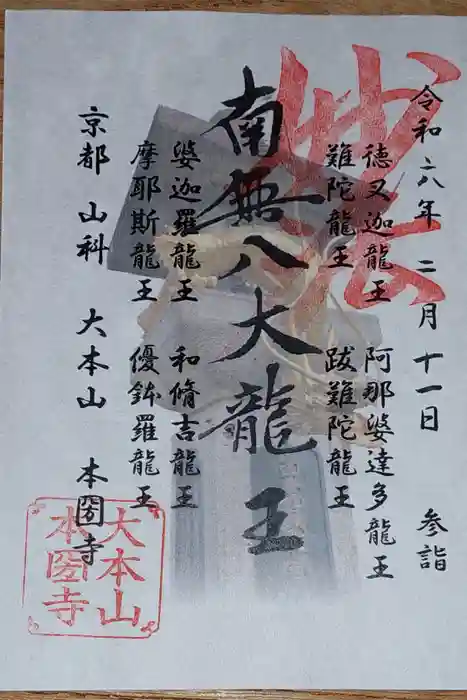 令和六年二月十一日 参詣
妙法
徳叉迦龍王 阿那婆達多龍王
難陀龍王 跋難陀龍王
南無八大龍王
婆迦羅龍王 和脩吉龍王
摩耶斯龍王 優鉢羅龍王
京都 山科 大本山 本圀寺
大本山
本圀寺